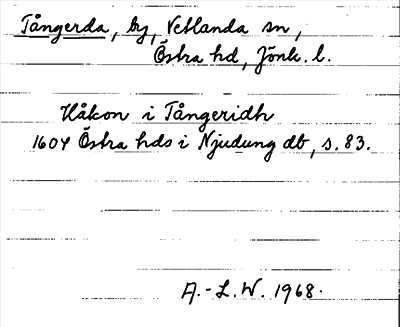 Tångerda, by, Vetlanda sn,
Östra hd, Jönk. l.
Håkon i Tångeridh
1604 Östra hds i Njudung db, s. 83.
A.-L. W. 1968.